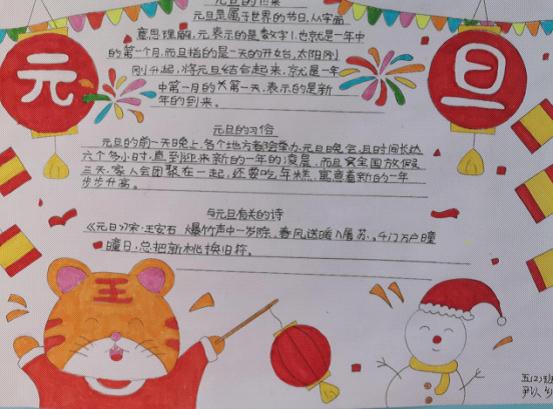 元旦的由来
元旦是属于世界的节日,从字面
意思理解,元表示的是数字1,也就是一年中
的第一个月,而旦指的是一天的开始,太阳刚
刚升起,将元旦结合起来,就是一年
中第一月的第一天,表示的是新
年的到来。
元
旦
元旦的习俗
元旦的前一天晚上,各个地方都会举办元旦晚会,且时间长达
六个多小时,直到迎来新的一年的凌晨,而且全国放假
三天,家人会团聚在一起,还要吃年糕,寓意着新的一年
步步升高。
与元旦有关的诗
《元日》宋·王安石 爆竹声中一岁除,春风送暖入屠苏。千门万户曈
曈日,总把新桃换旧符。
王
五(2)班